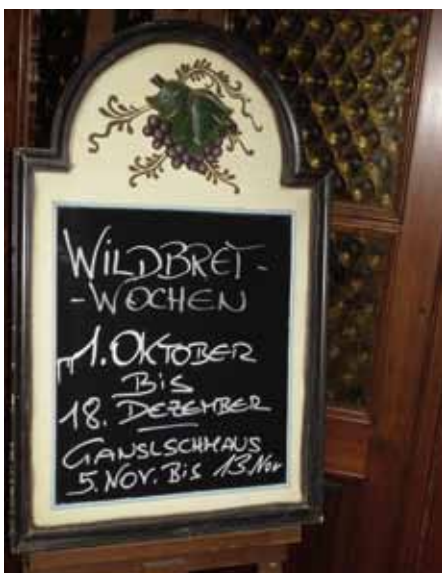 WILDBRET-
-WOCHEN
1. OKTOBER
BIS
18. DEZEMBER
GANSLSCHMAUS
5. NOV. BIS 13. Nov